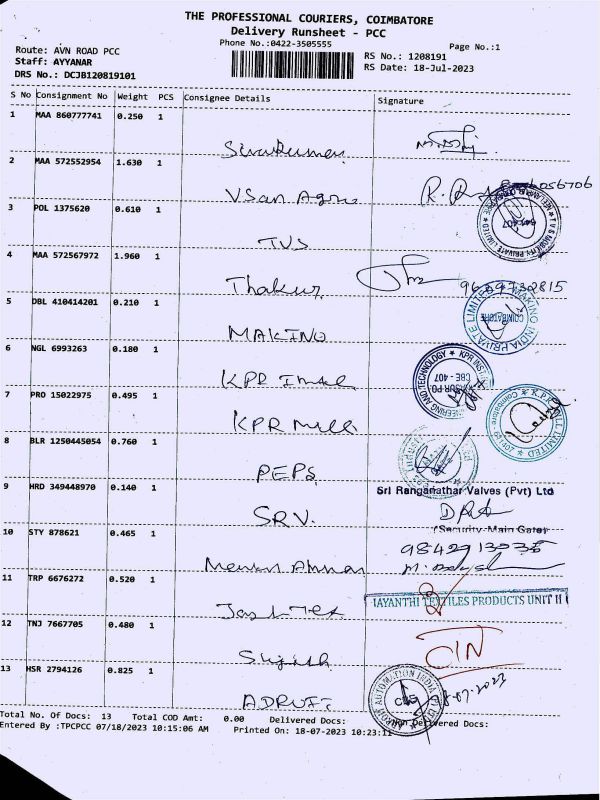 THE PROFESSIONAL COURIERS, COIMBATORE
Delivery Runsheet - PCC
Phone No.:0422-3505555
Page No.:1
Route: AVN ROAD PCC
Staff: AYYANAR
DRS No.: DCJB120819101
RS No.: 1208191
RS Date: 18-Jul-2023
S No Consignment No Weight PCS Consignee Details Signature
1 MAA 860777741 0.250 1
Sivakumar
2 MAA 572552954 1.630 1
VSan Agro
3 POL 1375620 0.610 1
TVS
4 MAA 572567972 1.960 1
Thakur 9689732815
5 DBL 410414201 0.210 1
MAKINO
MAKINO INDIA PRIVATE LIMITED COIMBATORE
6 NGL 6993263 0.180 1
KPR
CBE - 407
7 PRO 15022975 0.495 1
KPR Mill
8 BLR 1250445054 0.760 1
PEPS
9 HRD 349448970 0.140 1
Sri Ranganathar Valves (Pvt) Ltd
SRV.
(Security-Main Gate)
10 STY 878621 0.465 1
9842913035
11 TRP 6676272 0.520 1
JAYANTHI TEXTILES PRODUCTS UNIT II
12 TNJ 7667705 0.480 1
Sujith
13 HSR 2794126 0.825 1
AUTOMATION INDIA
Total No. Of Docs: 13 Total COD Amt: 0.00 Delivered Docs: Non Delivered Docs:
Entered By :TPCPCC 07/18/2023 10:15:06 AM Printed On: 18-07-2023 10:23:11